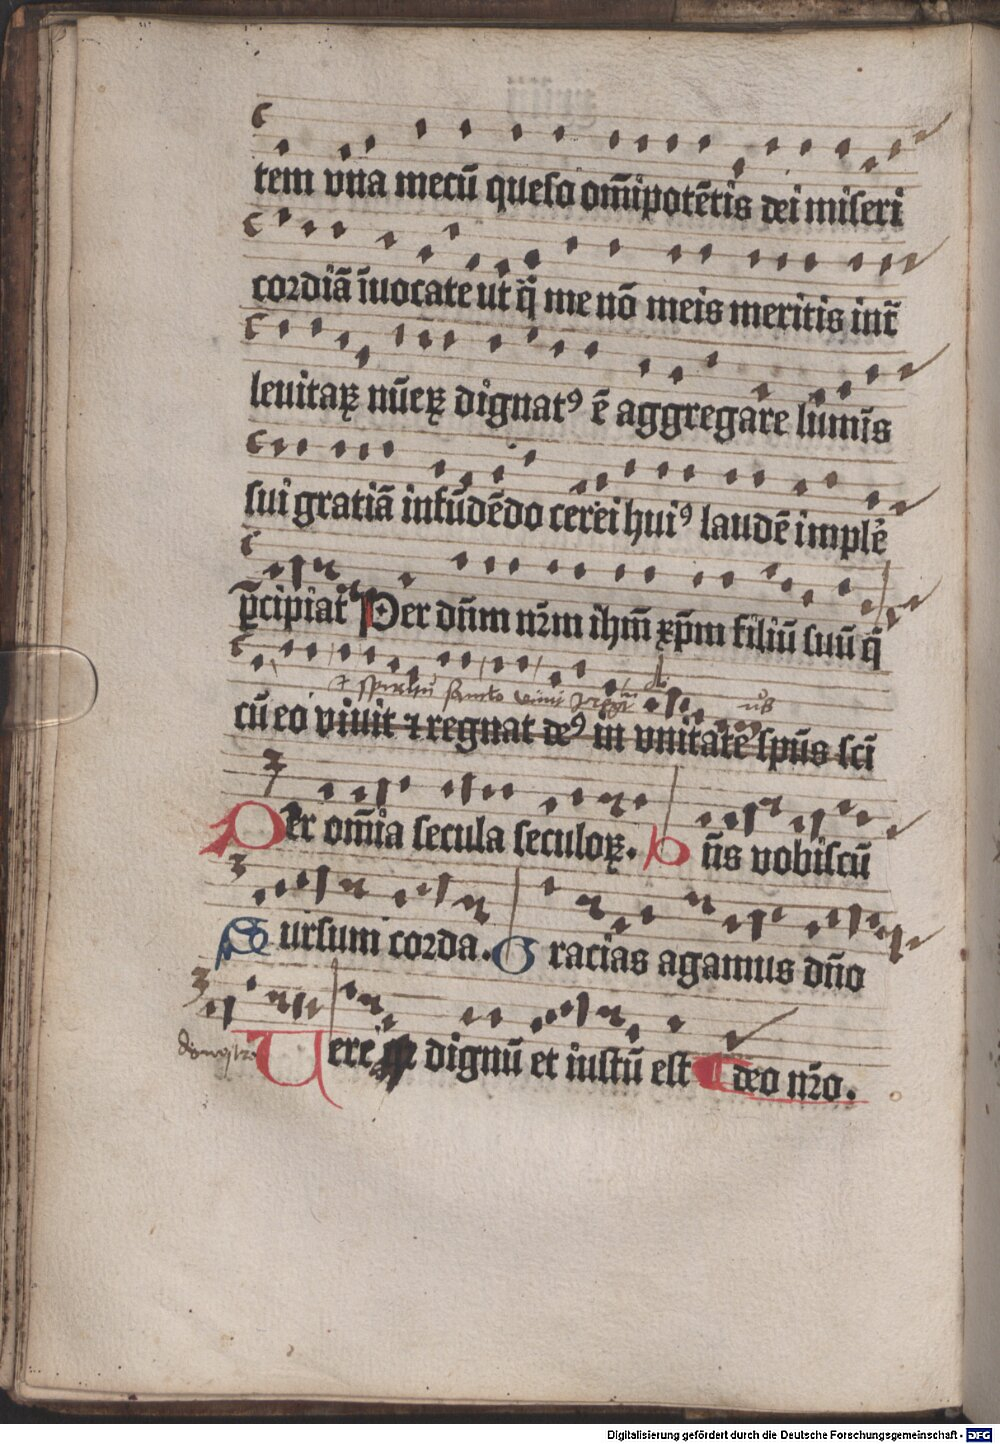 tem vna mecū queso om̄ipotētis dei miseri
cordiā īuocate ut q̄ me nō meis meritis int̄
leuitaꝝ nūeꝝ dignatꝰ ē aggregare lumīs
sui gratiā infūdēdo cerei huiꝰ laudē imple
p̄cipiat Per dn̄m nr̄m ihm̄ xp̄m filiū suū q̄
⁊ spiritu sancto
cū eo viuit ⁊ regnat deꝰ in vnitate sp̄us sc̄i
Per om̄ia secula seculoꝝ. D n̄s vobiscū
Sursum corda. Gracias agamus dn̄o
Uere dignū et iustū est deo nr̄o.
Digitalisierung gefördert durch die Deutsche Forschungsgemeinschaft - DFG